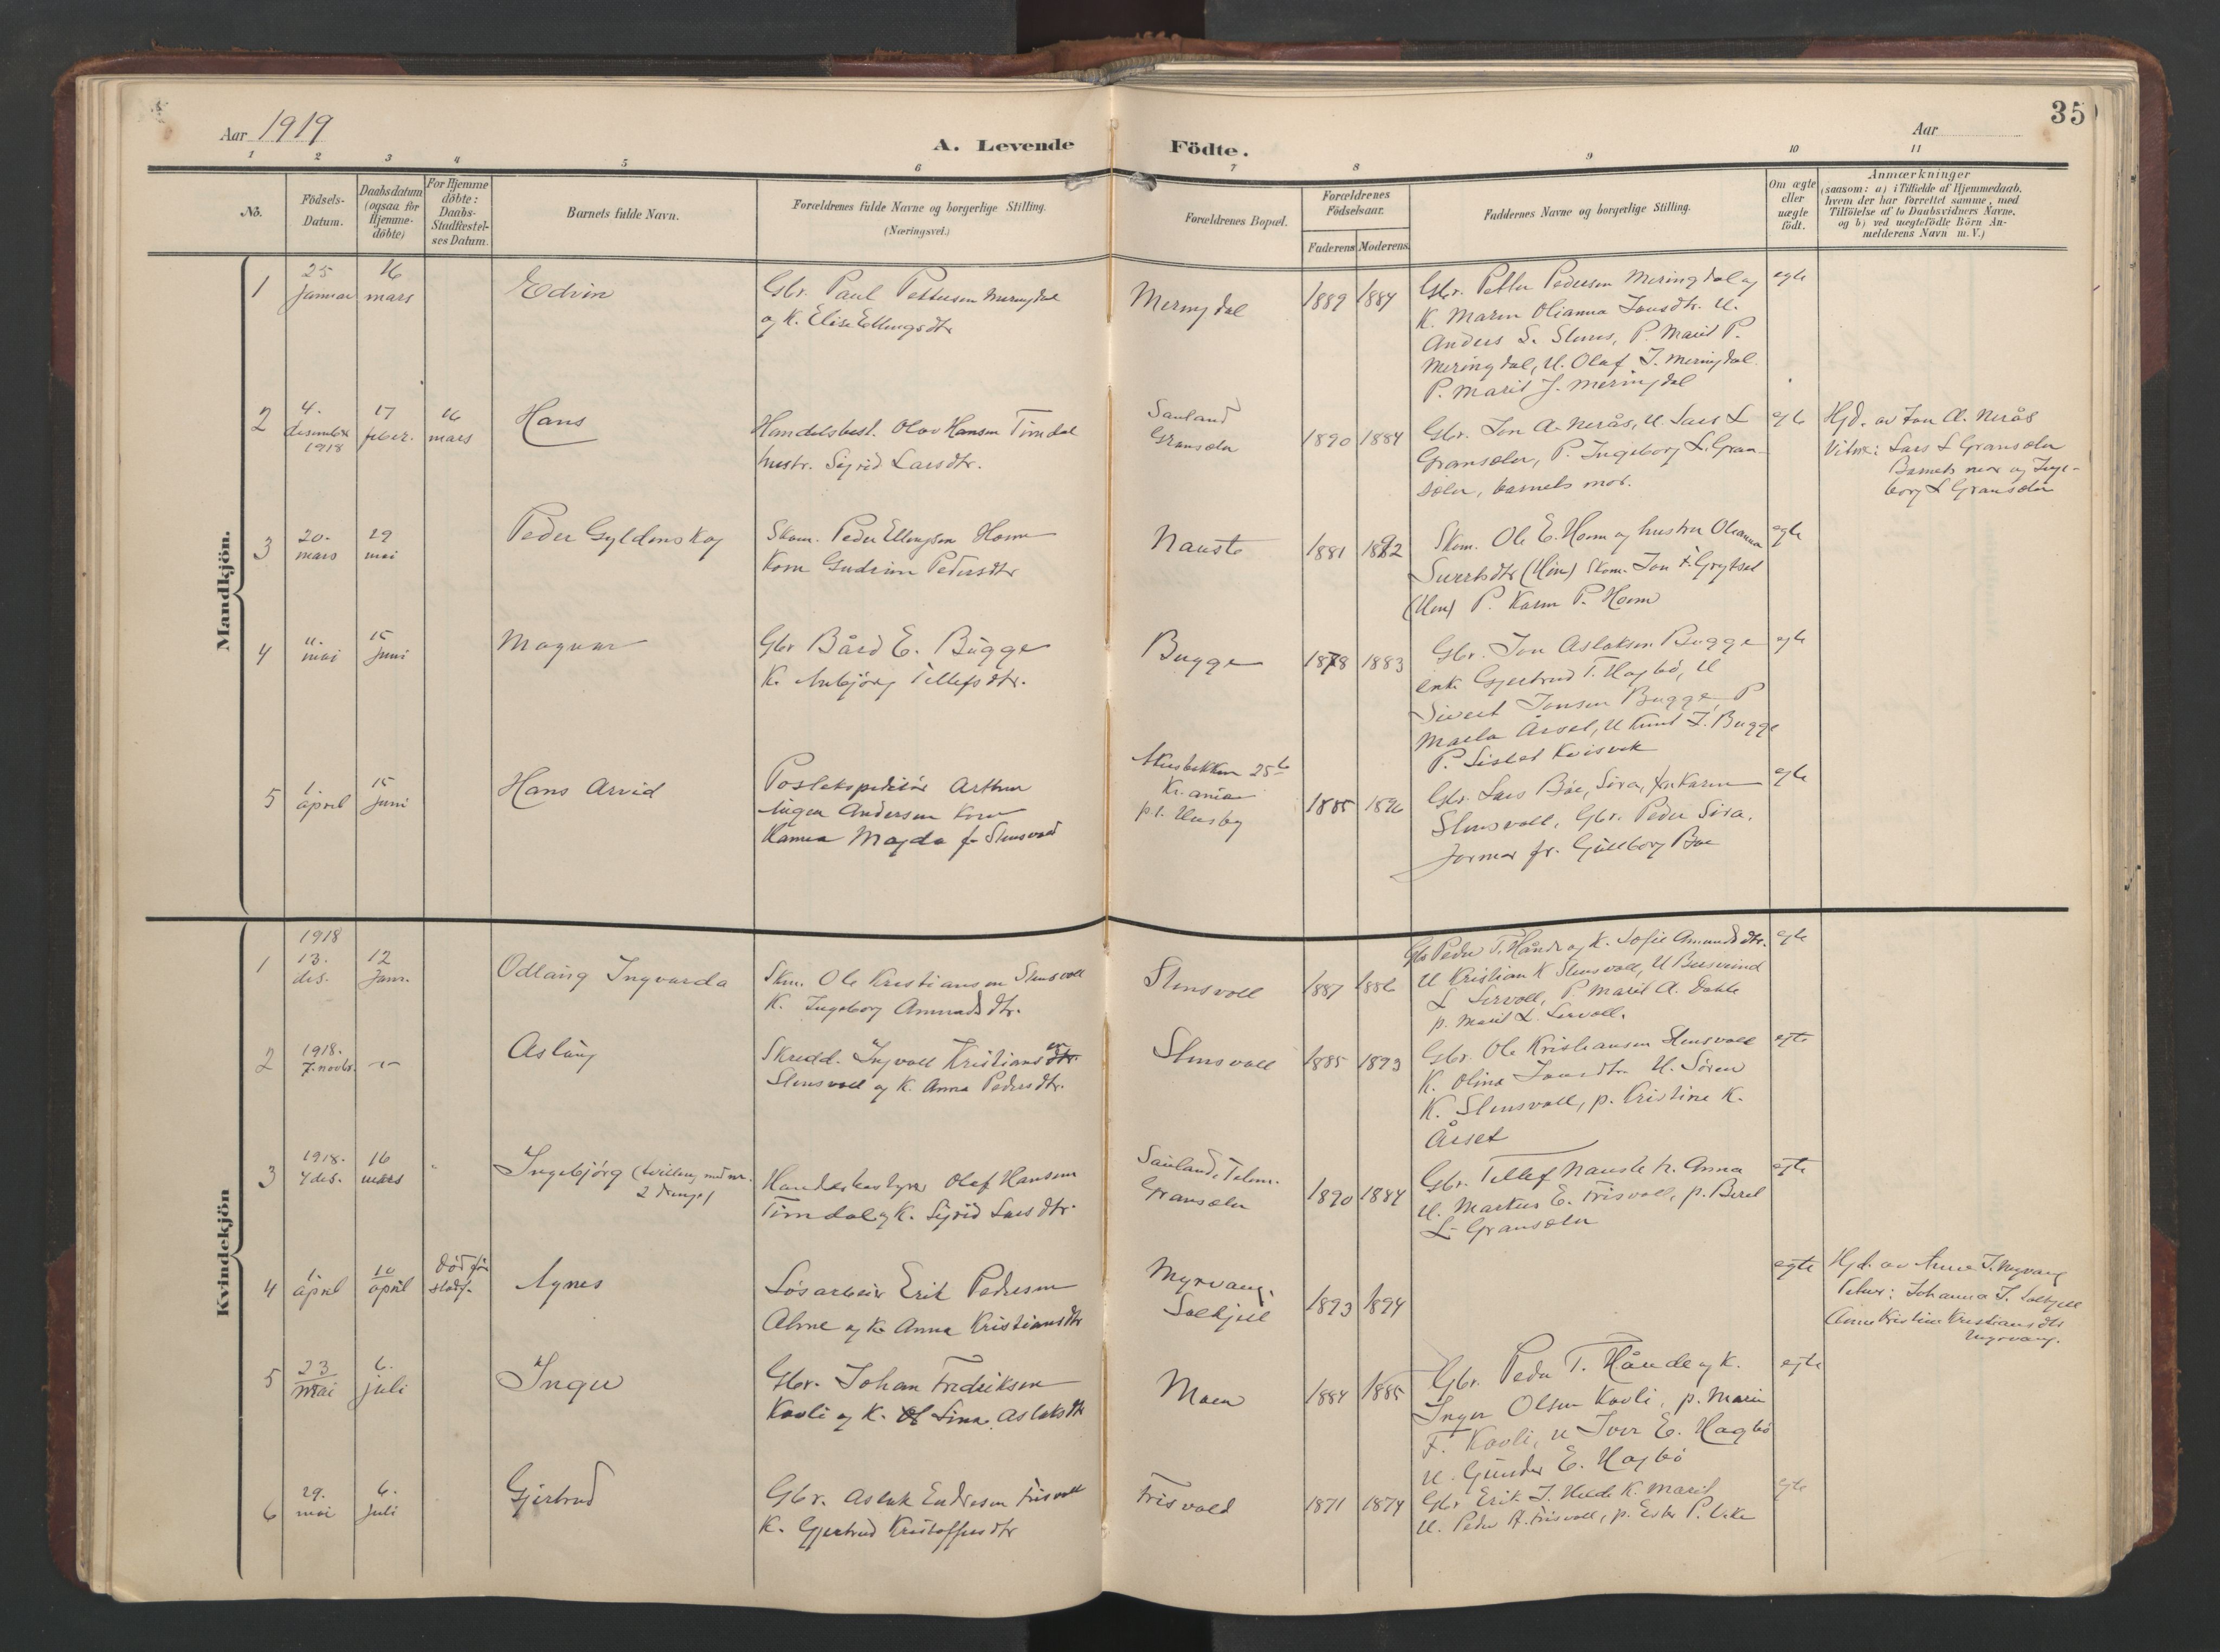 35
Aar 1919
A. Levende Födte.
Aar
1 2 3 4 5 6 7 8 9 10 11
Nö.
Födsels-Datum.
Daabsdatum (ogsaa for Hjemme-döbte)
For Hjemme döbte: Daabs-Stadfæstel-ses Datum.
Barnets fulde Navn.
Forældrenes fulde Navne og borgerlige Stilling. (Næringsvei.)
Forældrenes Bopæl.
Forældrenes Födselsaar.
Faderens Moderens
Faddernes Navne og borgerlige Stilling.
Om ægte eller uægte födt.
Anmærkninger
(saasom: a) i Tilfælde af Hjemmedaab, hvem der har forrettet samme, med Tilföielse af to Daabsvidners Navne, og b) ved uægtefödte Börn An-melderens Navn m. V.)
Mandkjön.
1
25 januar
16 mars
Edvin
Gbr. Paul Pettersen Meringdal
og K. Elise Ellingsdtr
Meringdal
1889 1884
Gbr. Petter Pedersen Meringdal og
K. Maren Olianna Jonsdtr. U.
Anders S. Stenes, P. Marit P.
Meringdal, U. Olaf J. Meringdal
P. Marit J. Meringdal
egte
2
4. desember 1918
17 feber.
16 mars
Hans
Handelsbest. Olav Hansen Timdal
hustr. Sigrid Larsdtr.
Sauland
Gransølen
1890 1884
Gbr. Jon A. Nerås, U. Lars L
Gransølen, P. Ingeborg L. Gran-
sølen, barnets mor.
egte
Hjd. av Jon A. Nerås
Vitne: Lars L Gransølen
Barnets mor og Inge-
borg L Gransølen
3
20. mars
29 mai
Peder Gyldenskog
Skom. Peder Ellingsen Hoem
Kone Gudrun Pedersdtr
Nauste
1881 1892
Skom. Ole E. Hoem og hustru Oleanna
Sivertsdtr (Hen) Skom. Jon F. Grytset
(Uen) P. Karen P. Hoem
egte
4
11. mai
15 juni
Magnar
Gbr Bård E. Bugge
K. Anbjørg Tellefsdtr.
Bugge
1878 1883
Gbr. Jon Aslaksen Bugge
enke Gjertrud T. Hagbø, U
Sivert Jonsen Bugge, P
Marta Årset, U Knut J. Bugge
P. Sislet Kvisvik
egte
5
1. april
15 juni
Hans Arvid
Postekspeditør Arthur
Andersen Kone
Hanna Magda f. Stensvold
25 b
Kr.ania
p.t. Husby
1885 1896
Gbr. Lars Bøe, Sira, Karen
Stensvoll, Gbr. Peder Sira,
Jormor fr. Gullborg Bøe
egte
Kvindekjön
1
1918 13. des.
12 janr.
Odlaug Ingvarda
Skm. Ole Kristiansen Stensvoll
K. Ingeborg Amundsdtr.
Stensvoll
1887 1886
Gbr Peder T. Hånde og K. Sofie Amundsdtr.
U Kristian K Stensvoll, U Bersveind
L Sirvoll, P Marit A. Dahle
p. Marit L. Sirvoll.
egte
2
1918. 7. novbr.
-"-
Aslaug
Skredd. Ingvall Kristiansen
Stensvoll og K. Anna Pedersdtr.
Stensvoll
1885 1893
Gbr. Ole Kristiansen Stensvoll
K. Olina Jonsdtr. U. Søren
K. Stensvoll, p. Kristine K.
Årset
egte
3
1918. 4 des.
16 mars
"
Ingebjørg (tvilling med nr. 2 drenge)
Handelsbestyrer Olaf Hansen
Timdal og K. Sigrid Larsdtr.
Sauland, Telem.
Gransølen
1890 1884
Gbr. Tellef Nauste h. Anna
U. Markus E. Frisvoll, p. Beret
L. Gransølen
egte
4
1. april
10 april
Død før stadf.
Agnes
Løsarbeider Erik Pedersen
Alme og K Anna Kristiansdtr
Myrvang,
Solkjell
1893 1894
egte
Hjd. av Anne J. Myrvang
Vitner: Johanna J. Solkjell
Anne Kristine Kristiansdtr
Myrvang.
5
23 mai
6. juli
Inger
Gbr. Johan Fredriksen
Kavli og K. Lina Aslaksdtr
Moen
1884 1885
Gbr. Peder T. Hånde og K.
Inger Olsen Kavli, p. Marie
F. Kavli, U Iver E. Hagbø
U. Gunder E. Hagbø
egte
6
29. mai
6. juli
Gjertrud
Gbr. Aslak Endresen Frisvoll
K. Gjertrud Kristoffersdtr
Frisvold
1871 1874
Gbr Erik J. Hilde K. Marit
U. Peder A. Frisvoll, p. Ester P. Eike
egte